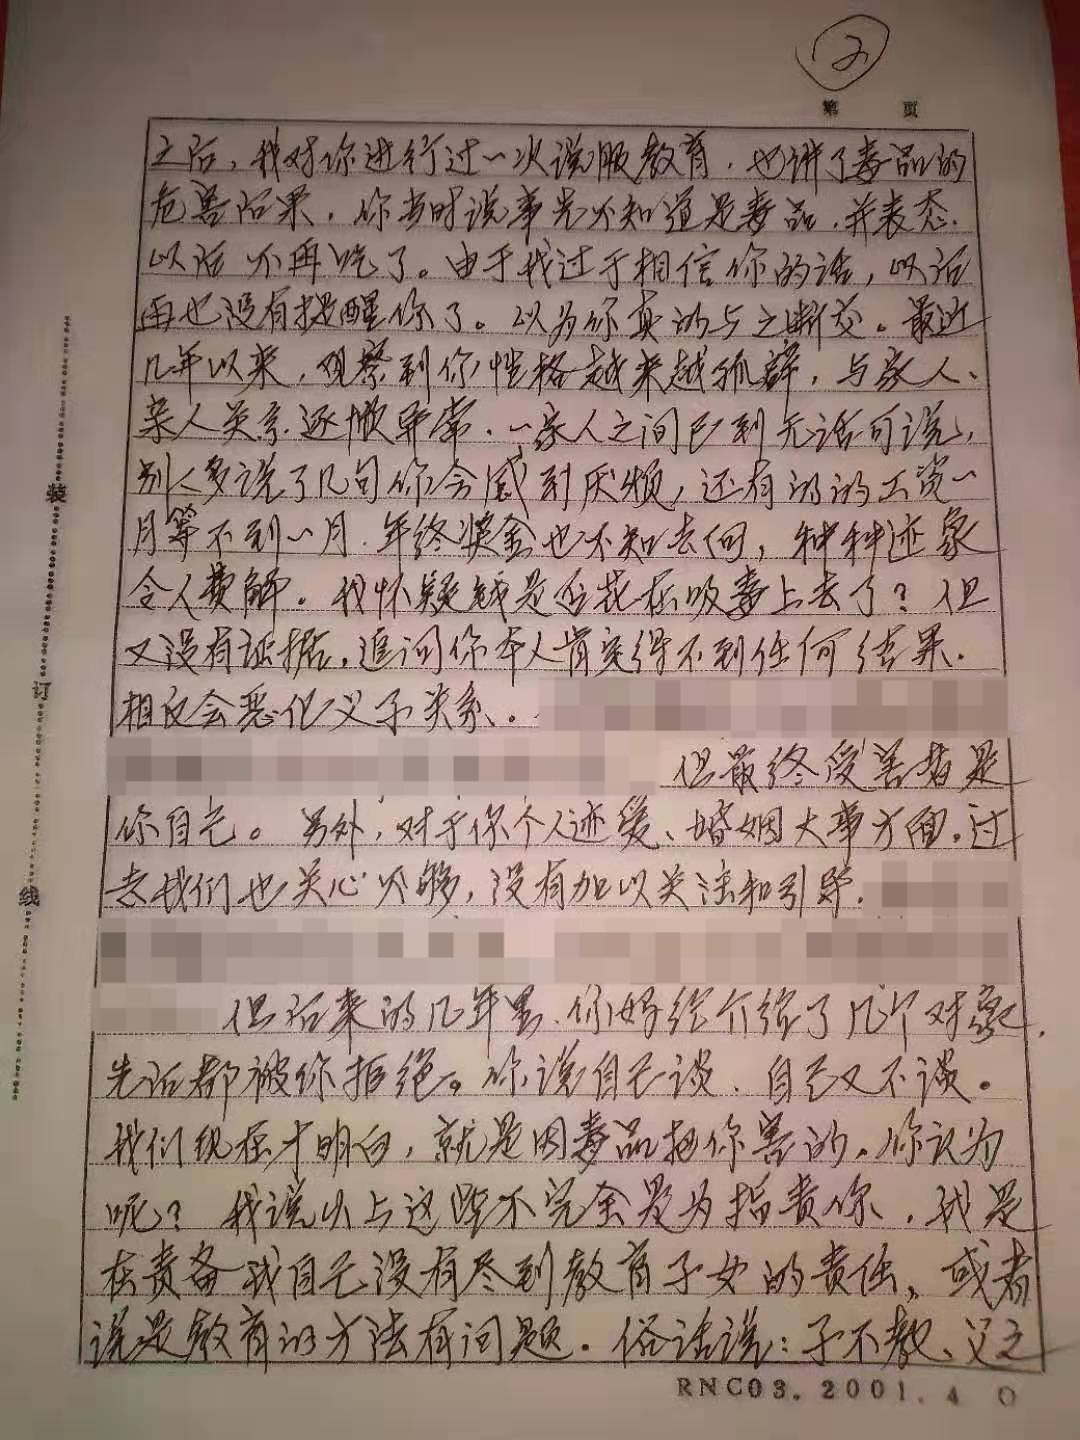 ②
第 页
之后，我对你进行过一次说服教育，也讲了毒品的
危害后果，你当时说事先不知道是毒品，并表态，
以后不再吃了。由于我过于相信你的话，以后
再也没有提醒你了。以为你真的与之断交。最近
几年以来，观察到你性格越来越孤僻，与家人、
亲人关系逐 异常，一家人之间已到无话可说，
别人多说了几句你会感到厌烦，还有你的工资一
月等不到一月，年终奖金也不知去何，种种迹象
令人费解。我怀疑钱是否花在吸毒上去了？但
又没有证据，追问你本人肯定得不到任何结果，
相反会恶化父子关系。
但最终受害者是
你自己。另外，对于你个人恋爱、婚姻大事方面，过
去我们也关心不够，没有加以关注和引导，
但后来的几年里，你妈给介绍了几个对象，
先后都被你拒绝。你说自己谈，自己又不谈。
我们现在才明白，就是因毒品把你害的。你认为
呢？我说以上这些不完全是为指责你，我是
在责备我自己没有尽到教育子女的责任，或者
说是教育的方法有问题。俗话说：子不教、父之
装
订
线
RNC03.2001.4